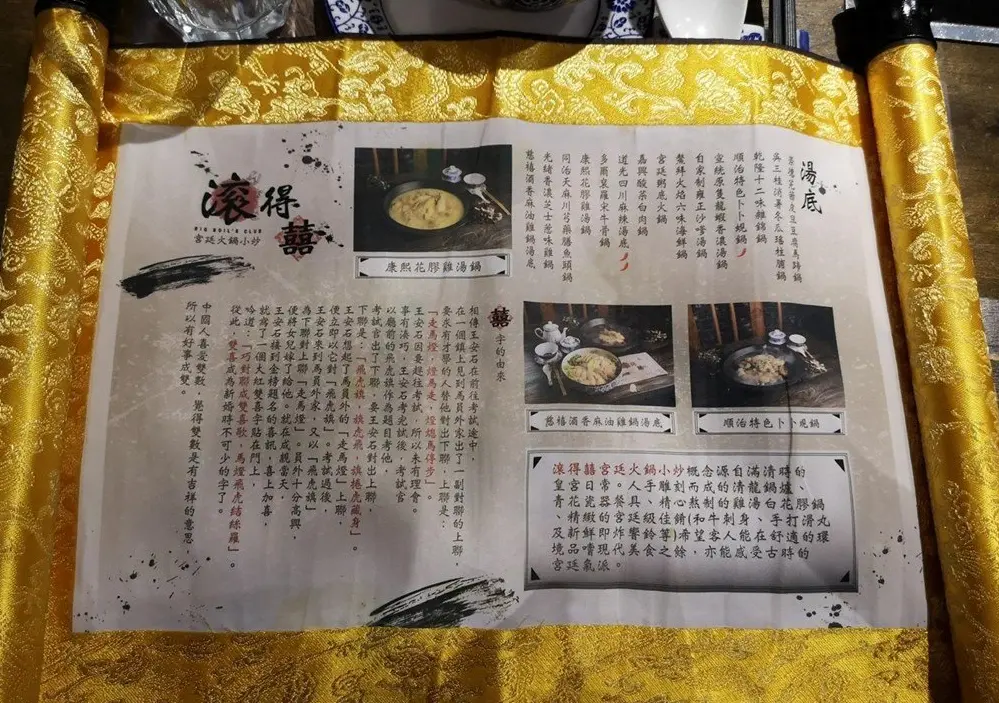 滾得囍
BIG BOIL'S CLUB
宮廷火鍋小炒
康熙花膠雞湯鍋
湯底
吳三桂消暑冬瓜瑤柱脯鍋
乾隆十二味雜錦鍋
順治特色卜卜蜆鍋
宣統原隻龍蝦香濃湯鍋
自家制雍正沙嗲湯鍋
鰲拜火焰六味海鮮鍋
宮廷粥底火鍋
嘉興酸菜白肉鍋
道光四川麻辣湯底
多爾袞羅宋牛骨鍋
康熙花膠雞湯鍋
同治天麻川芎藥膳魚頭鍋
光緒香濃芝士葱味雞鍋
慈禧酒香麻油雞鍋湯底
慈禧酒香麻油雞鍋湯底
順治特色卜卜蜆鍋
囍字的由來
相傳王安石在前往考試途中，
在一個鎮上見到馬員外家出了一副對聯的上聯，
要求有才學的人替他對出下聯，上聯是：
「走馬燈，燈馬走，燈熄馬停步」。
王安石因要趕往考試，所以未有理會。
事有湊巧，王安石考完試後，考試官
以廳前的飛虎旗作為題目考他，
考試官出了下聯，要王安石對出上聯，
下聯是：「飛虎旗，旗虎飛，旗捲虎藏身」。
王安石想起了馬員外的「走馬燈」上聯，
便立即以它對「飛虎旗」。考試過後，
王安石來到馬員外家，又以「飛虎旗」
為下聯對上聯「走馬燈」。員外十分高興，
便將女兒嫁了給他。就在成親當天，
王安石接到金榜題名的喜訊，喜上加喜，
就寫了一個大紅雙喜字貼在門上，
吟道：「巧對聯成雙喜歌，馬燈飛虎結絲羅」。
從此，雙喜成為新婚時不可少的字了。
中國人喜愛雙數，覺得雙數是有吉祥的意思，
所以有好事成雙。
滾得囍宮廷火鍋小炒概念源自滿清時的
皇宮日常。人手雕刻而成的清龍鍋爐、
青花瓷器的餐具、精心熬制的雞湯白花膠鍋
、精緻的宮廷級佳餚(和牛刺身、手打滑丸
及新鮮即炸響鈴等)希望客人能在舒適的環
境品嚐現代美食之餘，亦能感受古時的
宮廷氣派。